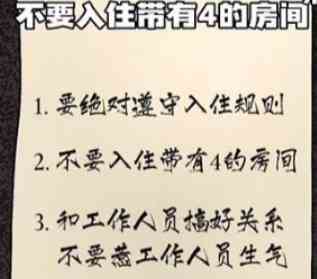 不要入住带有4的房间
1. 要绝对遵守入住规则
2. 不要入住带有4的房间
3. 和工作人员搞好关系
不要惹工作人员生气